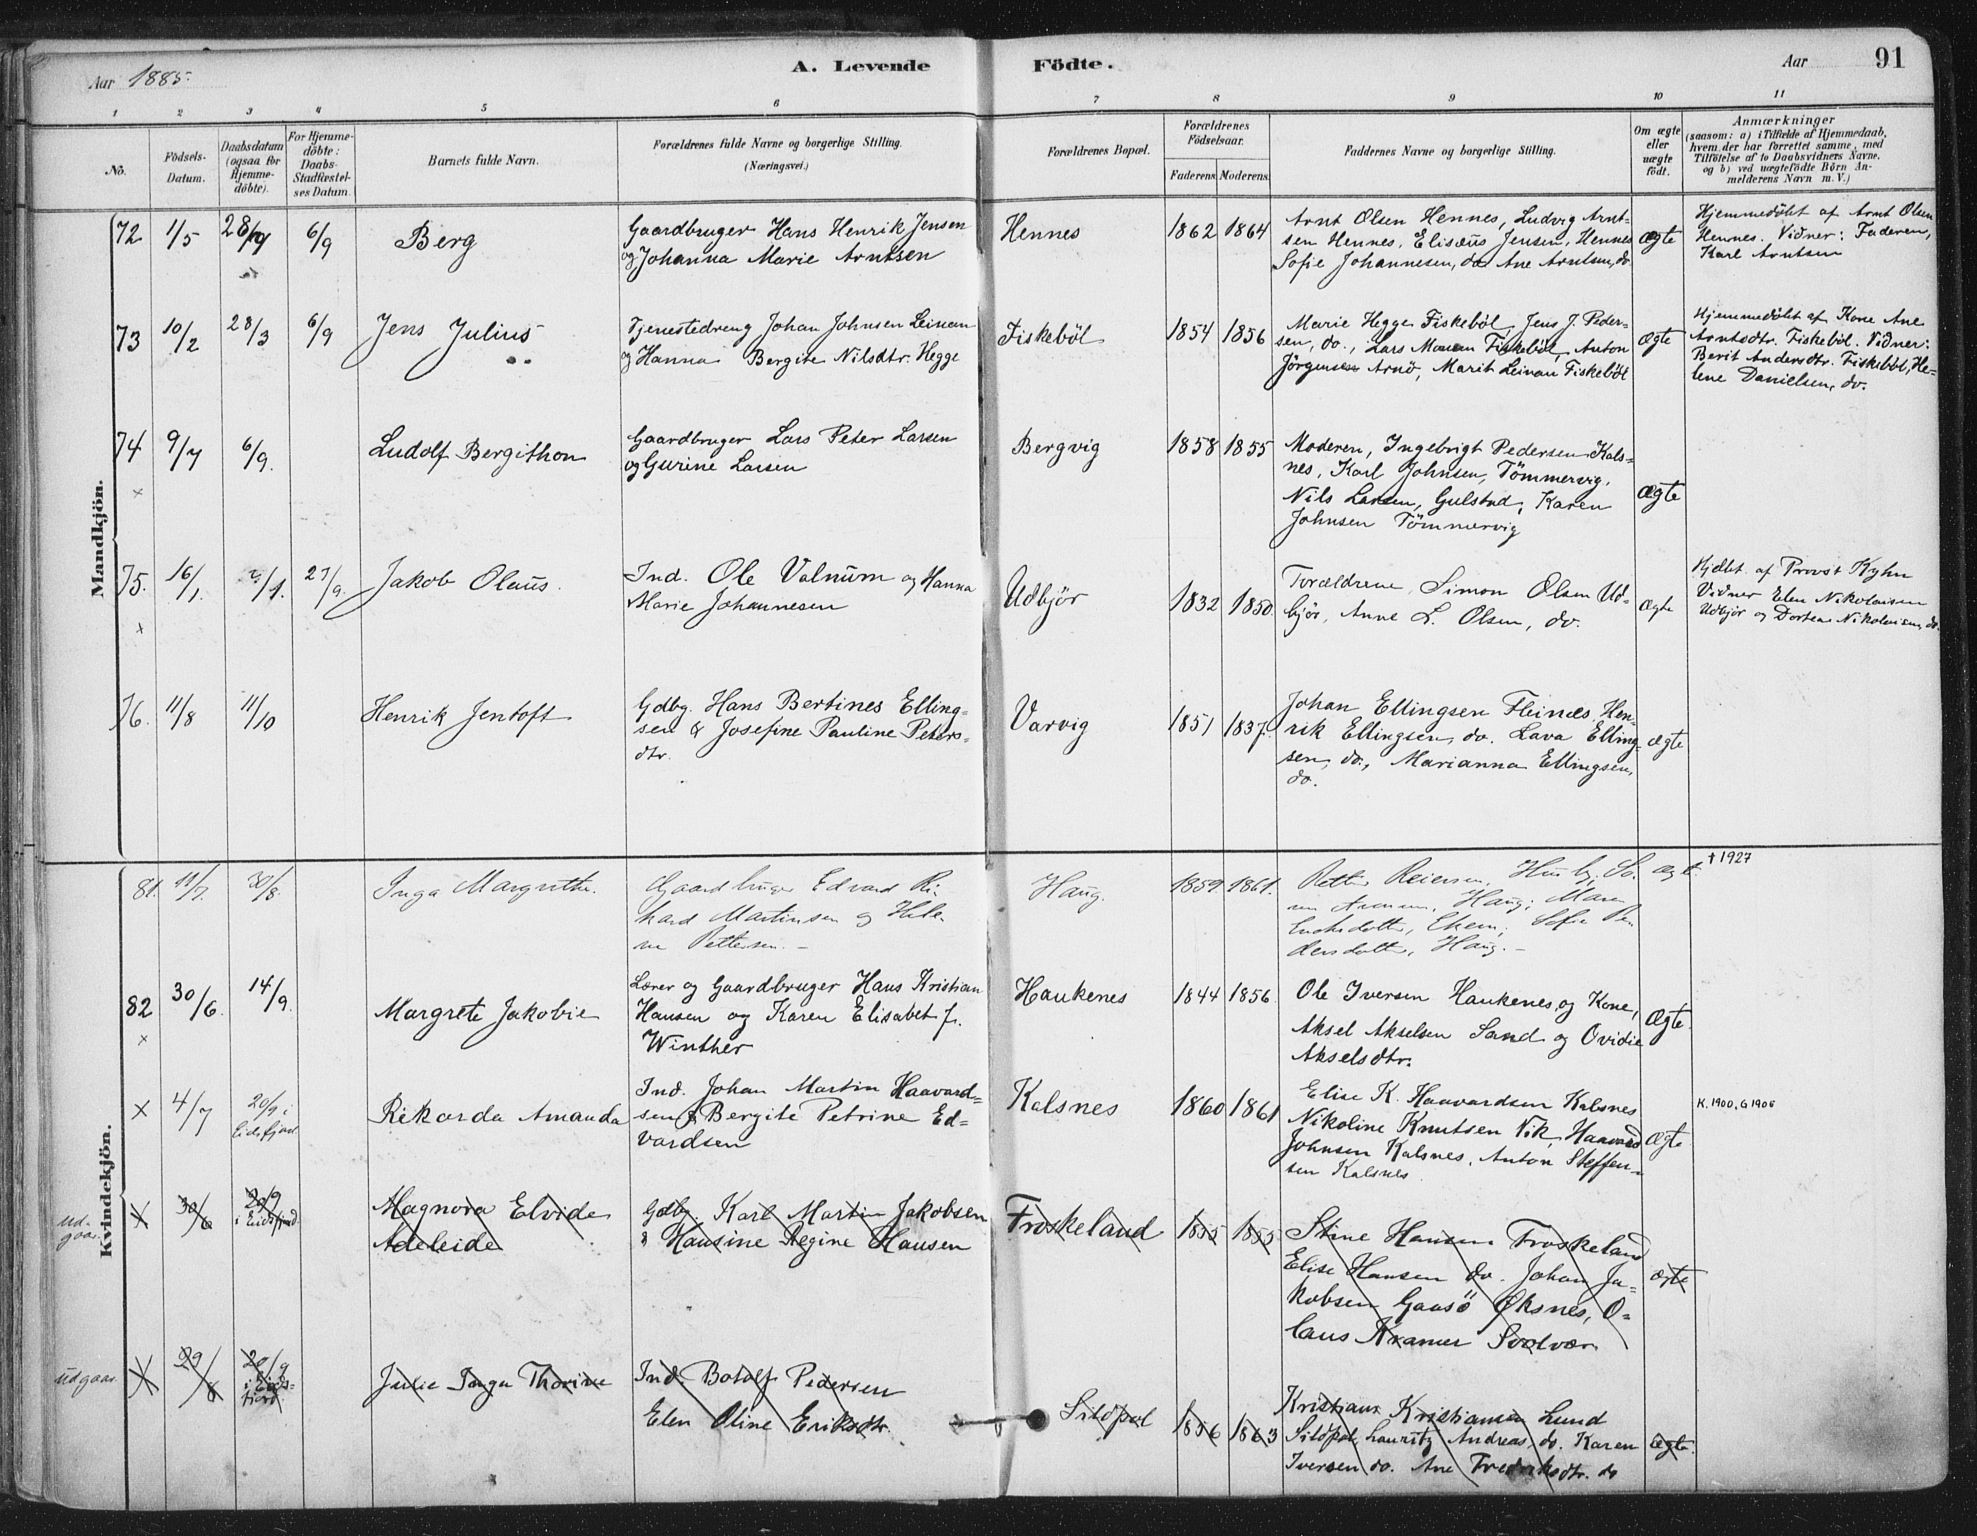 Aar 1885.
A. Levende Födte.
Aar 91
1 2 3 4 5 6 7 8 9 10 11
No.
Födsels-Datum.
Daabsdatum (ogsaa for Hjemme-döbte).
For Hjemme-döbte: Daabs-Stadfæstel-ses Datum.
Barnets fulde Navn.
Forældrenes fulde Navne og borgerlige Stilling. (Næringsvei.)
Forældrenes Bopæl.
Forældrenes Födselsaar.
Faderens. Moderens.
Faddernes Navne og borgerlige Stilling.
Om ægte eller uægte födt.
Anmærkninger
(saasom: a) i Tilfælde af Hjemmedaab, hvem der har forrettet samme, med Tilföielse af to Daabsvidners Navne, og b) ved uægtefödte Börn An-melderens Navn m. V.)
Mandkjön.
72 1/5 28/7 6/9 Berg
Gaardbruger Hans Henrik Jensen
og Johanna Marie Arntsen
Hennes 1862 1864
Arnt Olsen Hennes, Ludvig Arnt-
sen Hennes, Elisæus Jensen, Hennes
Sofie Johannesen, do Ane Arntsen, do
Ægte
Hjemmedöbt af Arnt Olsen
Hennes. Vidner: Faderen,
Karl Arntsen
73 10/2 28/3 6/9 Jens Julius
Tjenestedreng Johan Johnsen Leinan
og Hanna Bergite Nilsdtr. Hegge
Fiskeböl 1854 1856
Marie Hegge Fiskeböl, Jens J. Peder-
sen, do., Lars Fiskeböl, Anton
Jörgensen Arnö, Marit Leinan Fiskeböl
Ægte
Hjemmedöbt af Kone Ane
Arntsdtr. Fiskeböl. Vidner:
Berit Andersdtr. Fiskeböl, He-
lene Danielsen, do.
74 9/7 6/9. Ludolf Bergithon
Gaardbruger Lars Peter Larsen
og Gurine Larsen
Bergvig 1858 1855
Moderen, Ingebrigt Pedersen Kals-
nes, Karl Johnsen, Tömmervig,
Nils Larsen, Gulstad, Karen
Johnsen Tömmervig
Ægte
x
75. 16/1. /1. 27/9. Jakob Olaus.
Ind. Ole Valnum og Hanna
Marie Johannesen
Udbjör 1832 1850.
Forældrene, Simon Olsen Ud-
björ, Anne L. Olsen, do.
Ægte
Hjdbt. af Provst Kyhn
Vidner Elen Nikolaisen
Udbjör og Dortea Nikolaisen, do.
x
76. 11/8 11/10 Henrik Jentoft
Gdbg. Hans Bertines Elling-
sen & Josefine Pauline Peters-
dtr.
Varvig 1851 1837.
Johan Ellingsen Fleinæs, Hen-
rik Ellingsen, do. Lava Elling-
sen, do., Marianna Ellingsen,
do.
Ægte
Kvindekjön.
81. 11/7. 30/8. Inga Margrethe.
Gaardbruger Edvard Ri-
kard Martinsen og Hele-
ne Pettersen. -
Haug. 1859. 1861.
Petter Reiersen, Husby,
Haug; Maren
Sofie Pe-
dersdatter, Haug. -
† 1927
82 30/6. 14/9. Margrete Jakobie
Lærer og Gaardbruger Hans Kristian
Hansen og Karen Elisabet f.
Winther
Haukenes 1844 1856.
Ole Iversen Haukenes og Kone,
Aksel Akselsen Sand og Ovidie
Akselsdtr.
Ægte
x
x 4/7 20/9 i Eidsfjord Rikarda Amanda
Ind. Johan Martin Haavard-
sen & Bergite Petrine Ed-
vardsen
Kalsnes 1860 1861
Elise K. Haavardsen Kalsnes
Nikoline Knutsen Vik, Haavard
Johnsen Kalsnes, Anton Steffen-
sen Kalsnes
Ægte
K. 1900, G 1906
ud-
gaar. x 30/6 20/9 i Eidsfjord Magnora Elvide
Adeleide
Gdbg. Karl Martin Jakobsen
& Hansine Regine Hansen
Froskeland 1855 1855
Stine Hansen Froskeland
Elise Hansen do. Johan Ja-
kobsen Gaasö Öksnes, O-
laus Kramer Svolvær
ægte
udgaar. x 29/6 20/9 i Eids-fjord Julie Inga Thorine
Ind. Botolf Pedersen
Elen Oline Eriksdtr.
Sildpol 1856 1863
Kristians Kristiansen Lund
Sildpol, Lauritz Andreas, do. Karen
Iversen do. Ane Fredriksdtr. do
ægte.